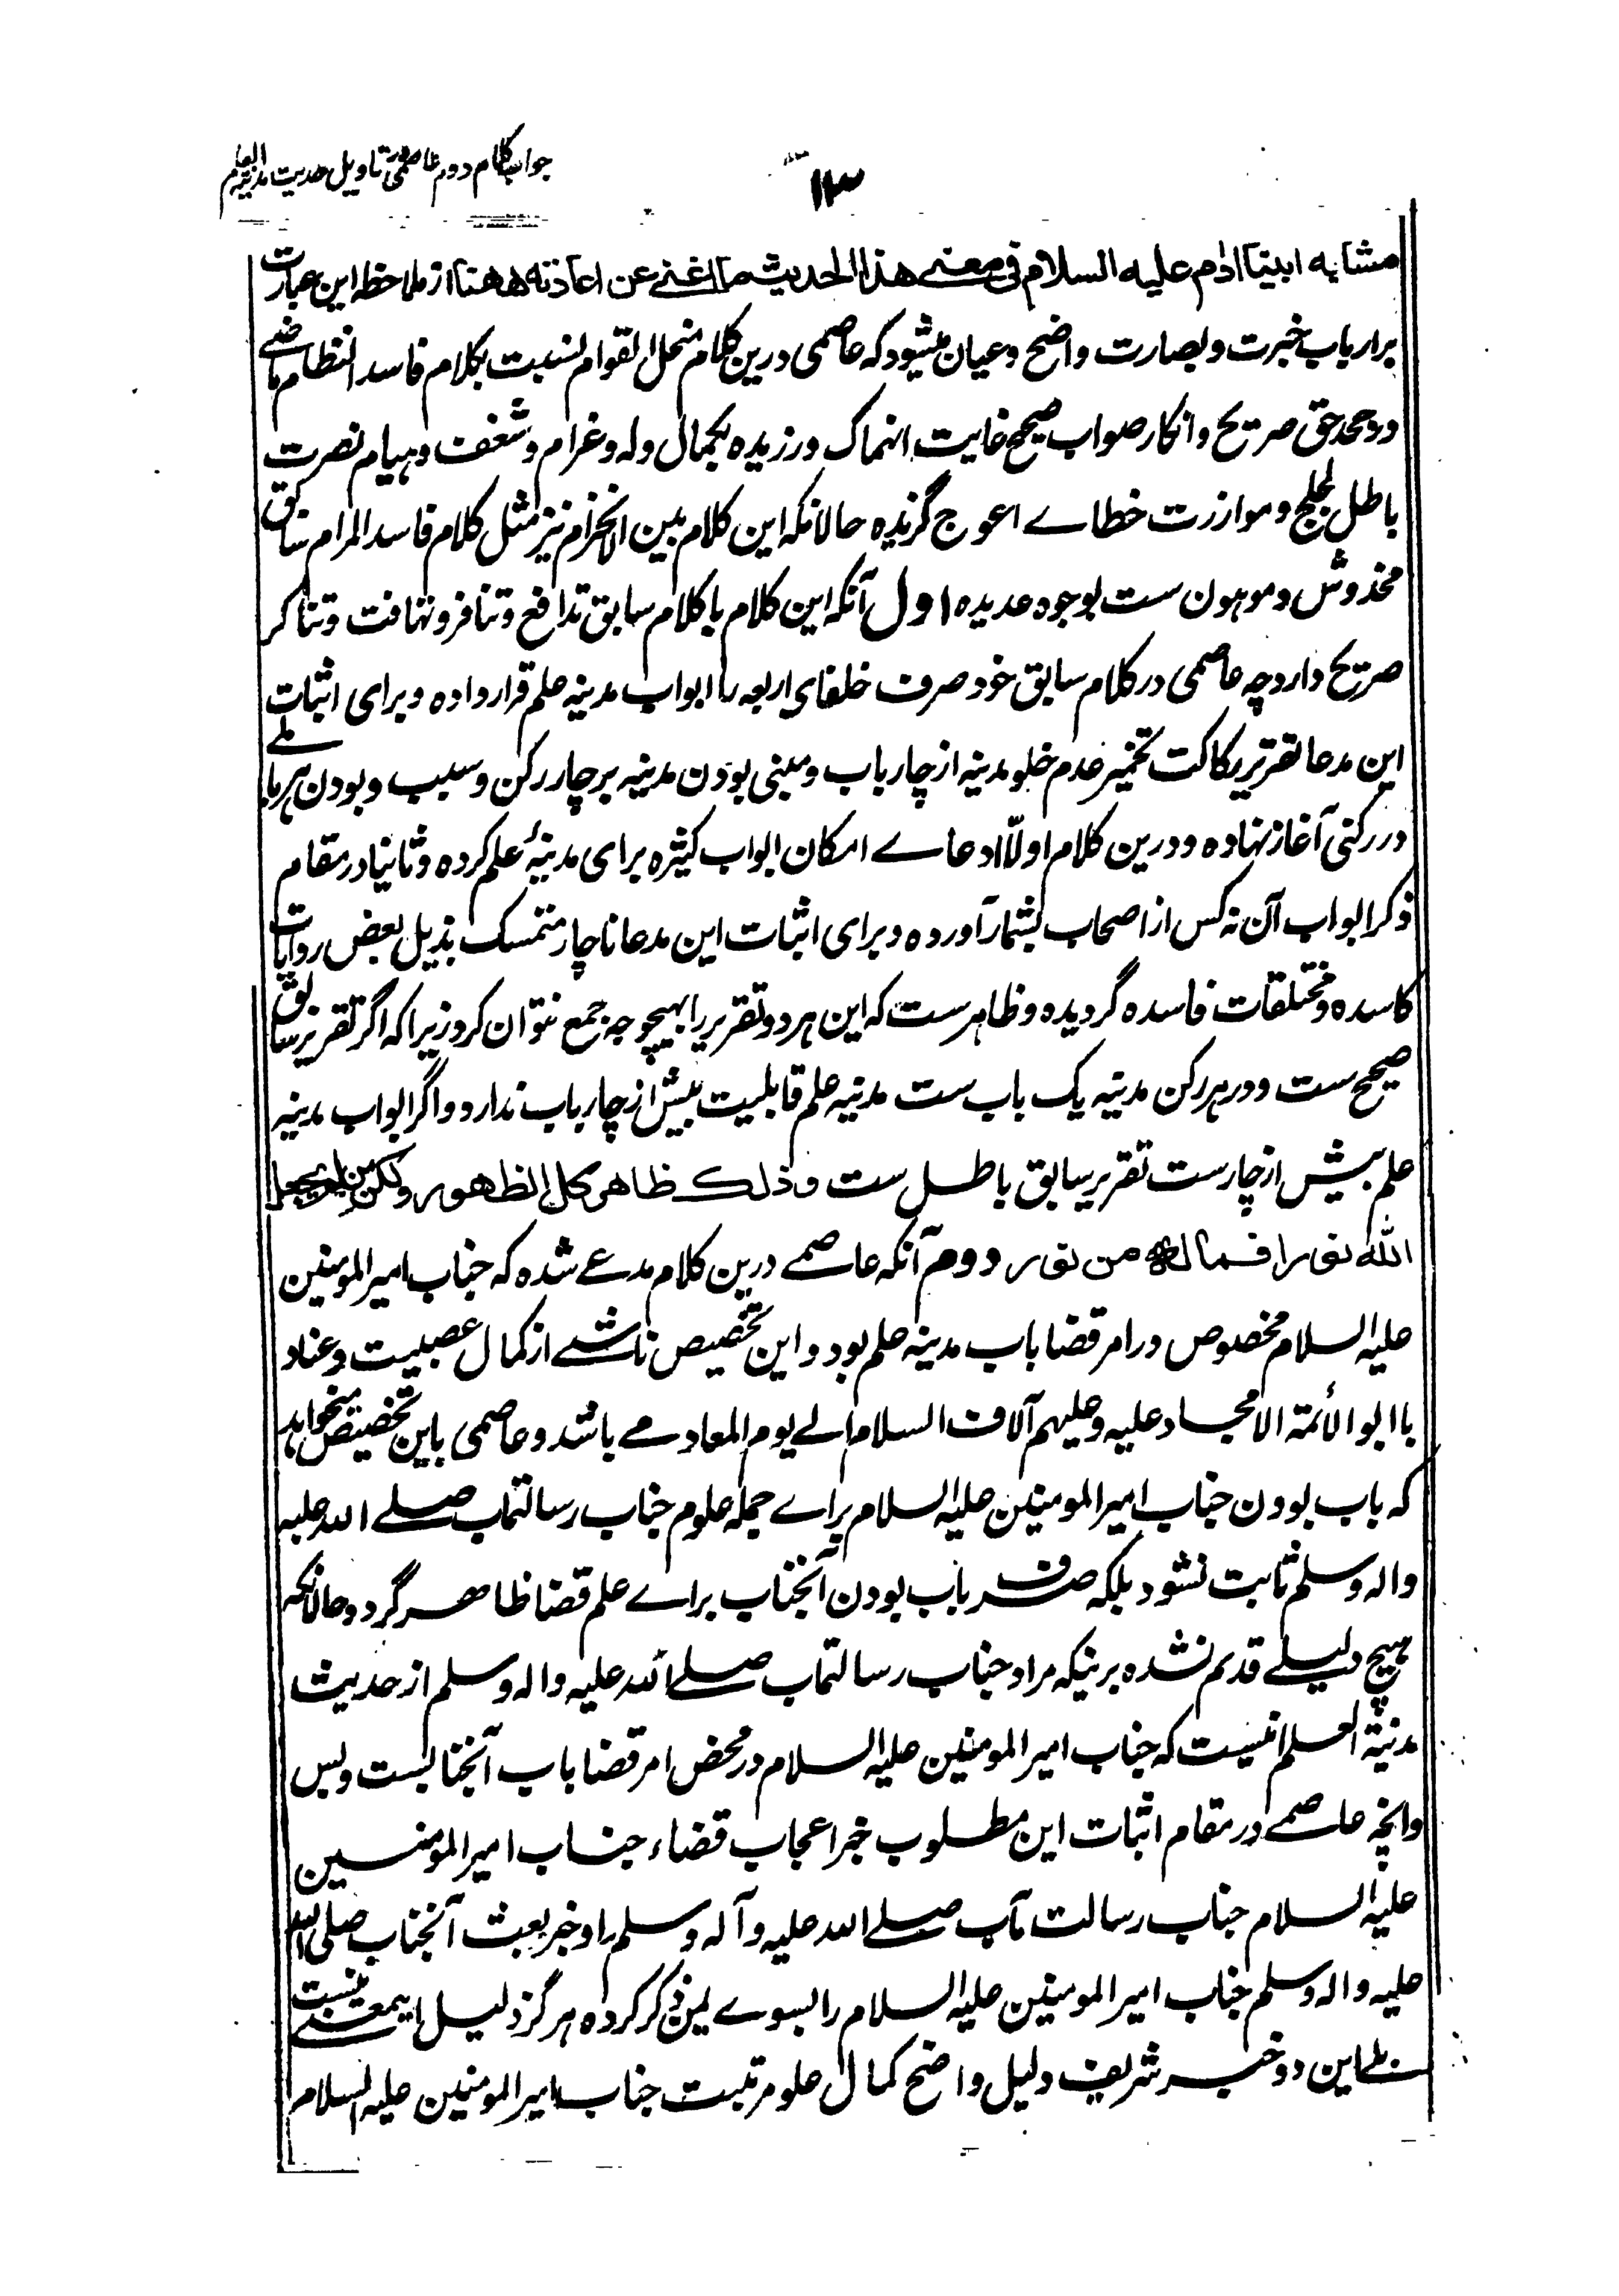 جواب کلام دوم عاصمی در تاویل حدیث مدینة العلم
۱۱۳
مشابه ابینا ادم علیه السلام فی معنے هذا الحدیث ما اغنے عن اعادته ههنا از ملاحظه این عبارت
بر ارباب خبرت و بصارت واضح و عیان میشود که عاصمی درین کلام منحل القوام نسبت بکلام فاسد النظام ماضے
در جحد حق صریح و انکار صواب صحیح غایت انهماک ورزیده بکمال وله و غرام و شغف و هیام نصرت
باطل لجلج و موازرت خطاے اعوج گزیده حالانکه این کلام بین الانخرام نیز مثل کلام فاسد المرام سابق
مخدوش و موهون ست بوجوه عدیده اول آنکه این کلام با کلام سابق تدافع و تنافر و تهافت و تناکر
صریح دارد چه عاصمی در کلام سابق خود صرف خلفای اربعه را ابواب مدینه علم قرار داده و برای اثبات
این مدعا تقریر رکاکت تخمیر عدم خلو مدینه از چار باب و مبنی بودن مدینه بر چار رکن و سبب و بودن هر بابے
در رکنی آغاز نهاده و درین کلام اولّا ادعاے امکان ابواب کثیره برای مدینهٔ علم کرده و ثانیا در مقام
ذکر ابواب آن نه کس از اصحاب بشمار آورده و برای اثبات این مدعا ناچار متمسک بذیل بعض روایات
کاسده و مختلقات فاسده گردیده و ظاهر ست که این هر دو تقریر را بهیچوجه جمع نتوان کرد زیرا که اگر تقریر سابق
صحیح ست و در هر رکن مدینه یک باب ست مدینه علم قابلیت بیش از چار باب ندارد و اگر ابواب مدینه
علم بیش از چار ست تقریر سابق باطل ست و ذلک ظاهر کل الظهور و لکن من لم یجعل
الله نورا فما له من نور دوم آنکه عاصمے درین کلام مدعے شده که جناب امیر المومنین
علیه السلام مخصوص در امر قضا باب مدینه علم بود و این تخصیص ناشے از کمال عصبیت و عناد
با ابو الأئمة الامجاد علیه و علیهم آلاف السلام الے یوم المعاد مے باشد و عاصمی باین تخصیص میخواهد
که باب بودن جناب امیر المومنین علیه السلام براے جمله علوم جناب رسالتماب صلے الله علیه
و اله و سلم ثابت نشود بلکه صرف باب بودن آنجناب براے علم قضا ظاهر گردد حالانکه
هیچ دلیلے قدیم نشده برینکه مراد جناب رسالتماب صلے الله علیه و اله و سلم از حدیث
مدنیة العلم انیست که جناب امیر المومنین علیه السلام در محض امر قضا باب آنجنابست و بس
و انچه عاصمے در مقام اثبات این مطلوب خبر اعجاب قضاء جناب امیر المومنسین
علیه السلام جناب رسالت مآب صلے الله علیه و آله و سلم را و خبر بعث آنجناب صلی الله
علیه و اله و سلم جناب امیر المومنین علیه السلام را بسوے یمن ذکر کرده هرگز دلیل اینمعنے نیست
بلے این دو خبر شریف دلیل واضح کمال علو مرتبت جناب امیر المومنین علیه السلام